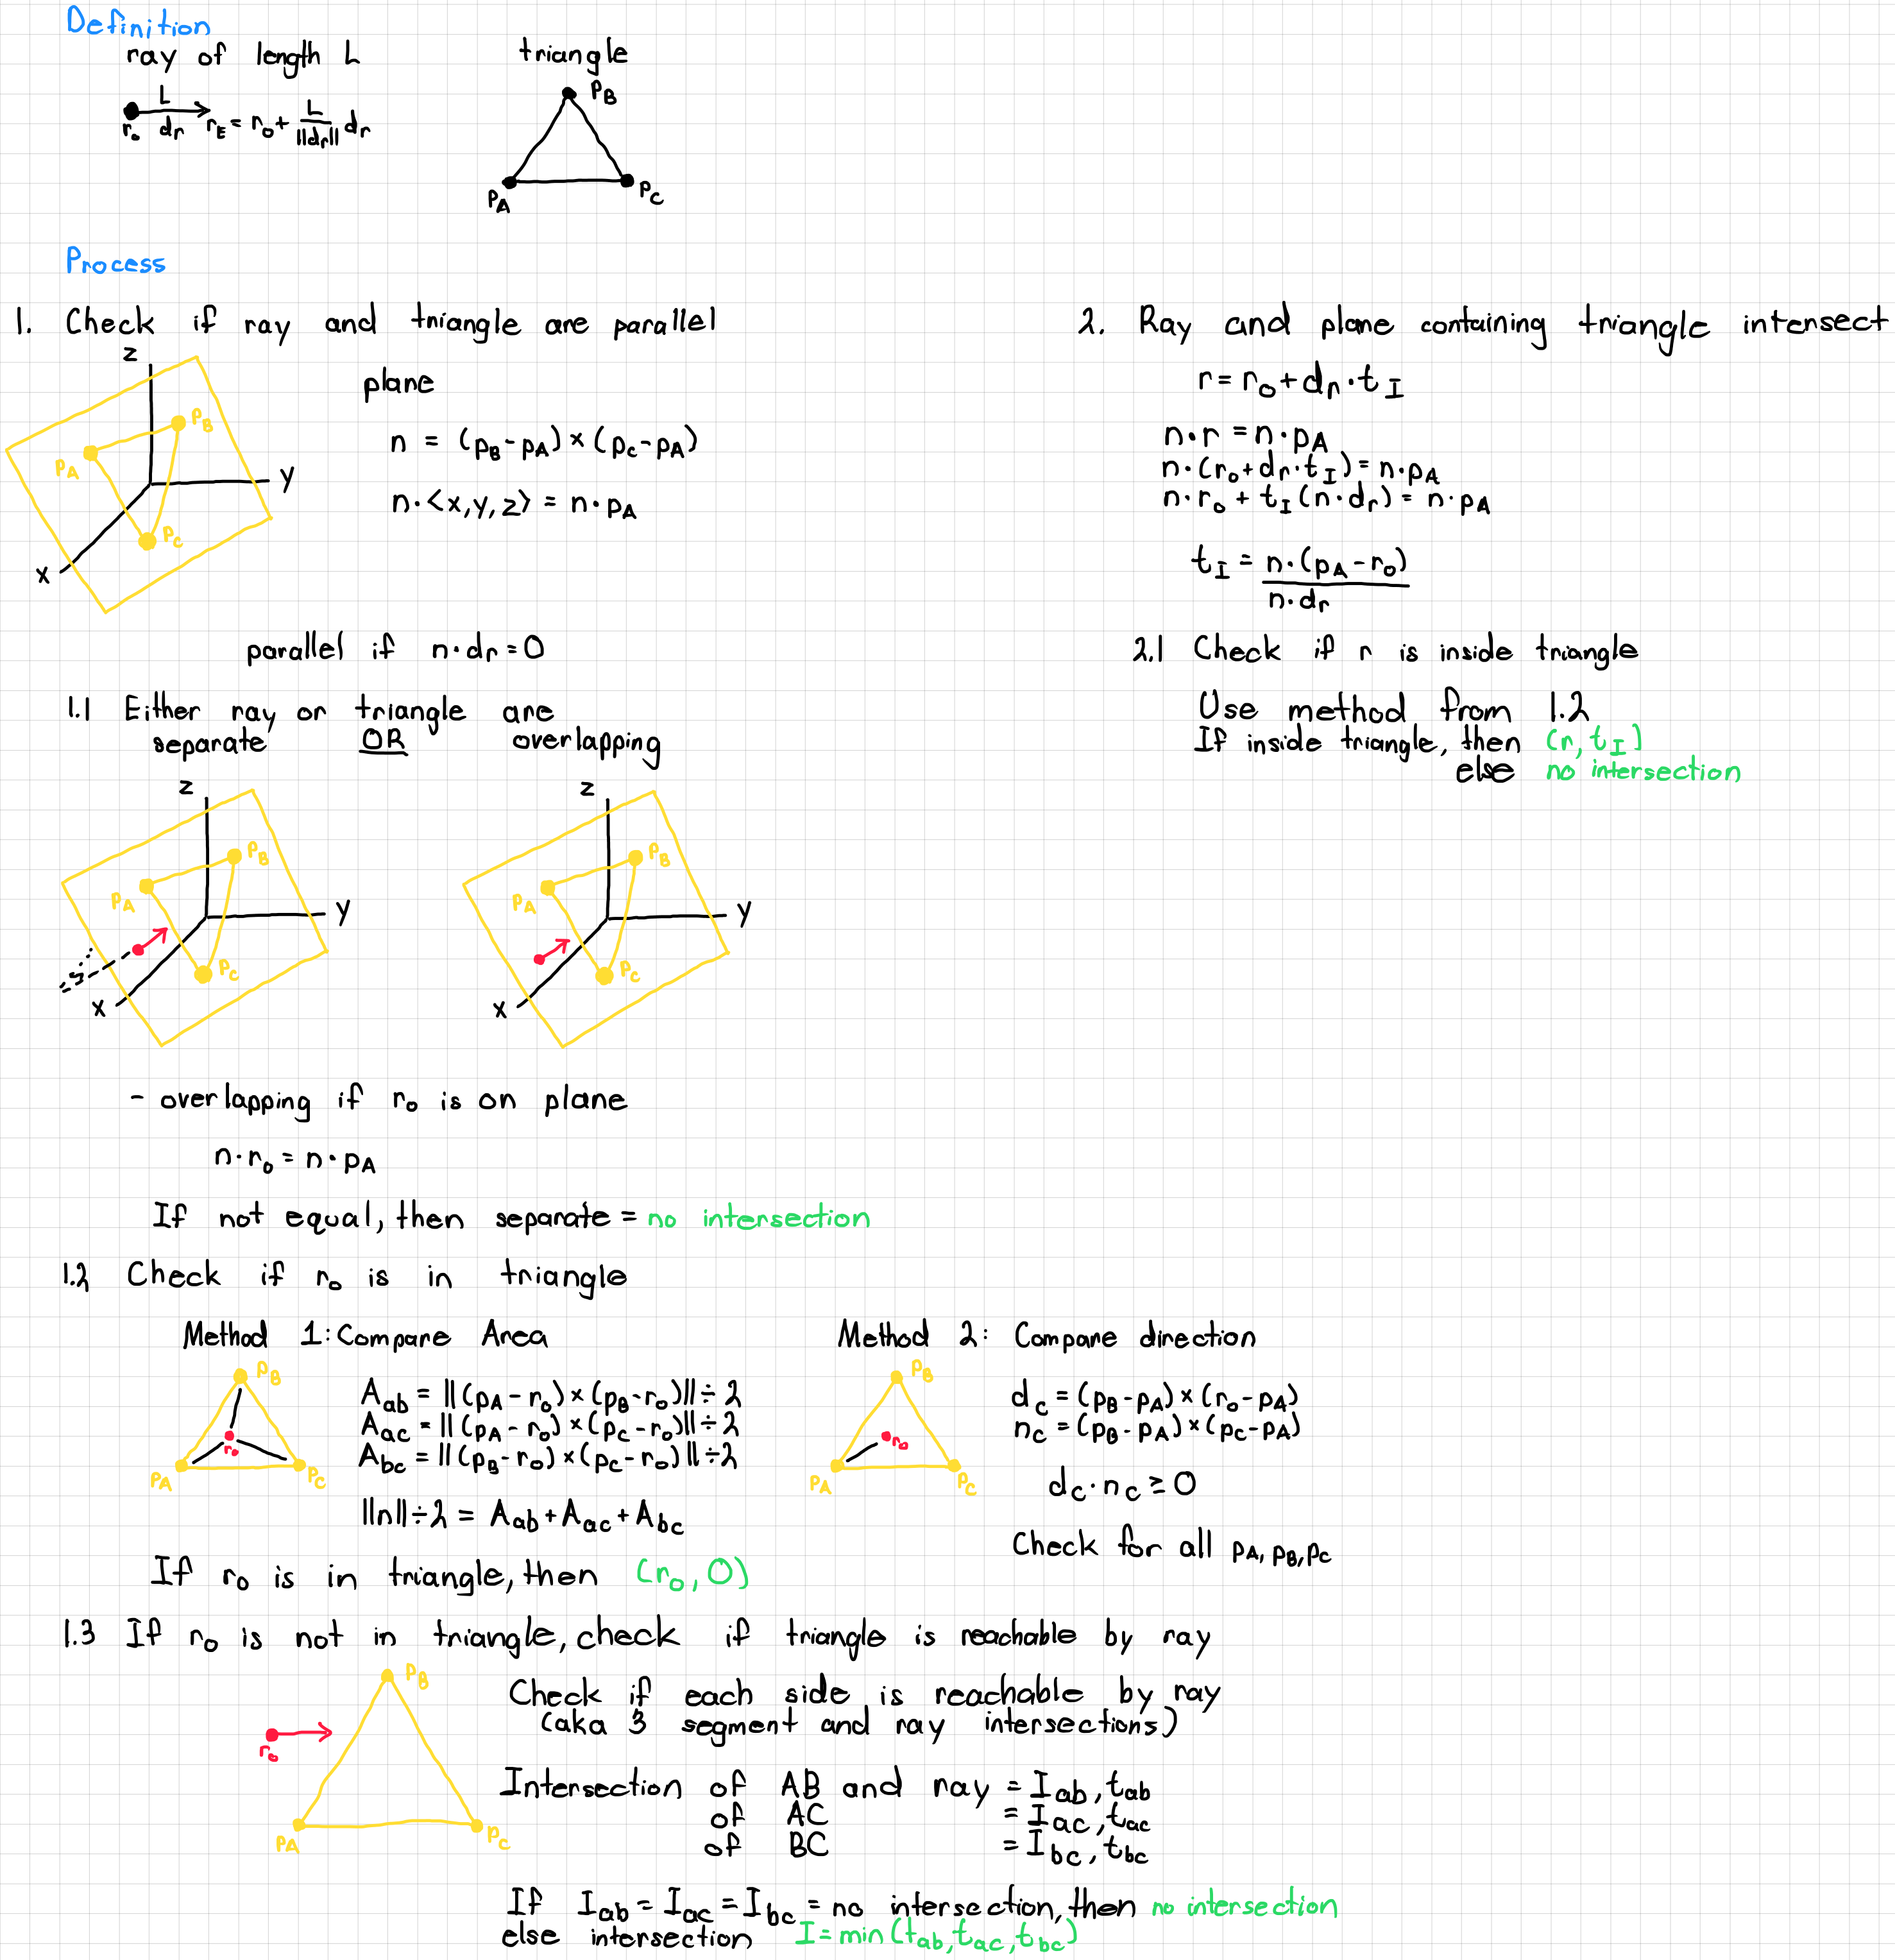 Definition
ray of length L
L
r₀ dᵣ r_E = r₀ + L/||dᵣ|| dᵣ
triangle
p_B
p_A
p_C
Process
1. Check if ray and triangle are parallel
z
p_B
p_A
y
p_C
x
plane
n = (p_B - p_A) × (p_C - p_A)
n·<x, y, z> = n·p_A
parallel if n·dᵣ = 0
1.1 Either ray or triangle are
separate OR overlapping
z
p_B
p_A
y
p_C
x
z
p_B
p_A
y
p_C
x
- overlapping if r₀ is on plane
n·r₀ = n·p_A
If not equal, then separate = no intersection
1.2 Check if r₀ is in triangle
Method 1: Compare Area
p_B
r₀
p_A
p_C
A_ab = ||(p_A - r₀) × (p_B - r₀)|| ÷ 2
A_ac = ||(p_A - r₀) × (p_C - r₀)|| ÷ 2
A_bc = ||(p_B - r₀) × (p_C - r₀)|| ÷ 2
||n|| ÷ 2 = A_ab + A_ac + A_bc
If r₀ is in triangle, then (r₀, 0)
Method 2: Compare direction
p_B
r₀
p_A
p_C
d_c = (p_B - p_A) × (r₀ - p_A)
n_c = (p_B - p_A) × (p_C - p_A)
d_c·n_c ≥ 0
Check for all p_A, p_B, p_C
1.3 If r₀ is not in triangle, check if triangle is reachable by ray
p_B
r₀
p_A
p_C
Check if each side is reachable by ray
(aka 3 segment and ray intersections)
Intersection of AB and ray = I_ab, t_ab
of AC = I_ac, t_ac
of BC = I_bc, t_bc
If I_ab = I_ac = I_bc = no intersection, then no intersection
else intersection I = min(t_ab, t_ac, t_bc)
2. Ray and plane containing triangle intersect
r = r₀ + dᵣ·t_I
n·r = n·p_A
n·(r₀ + dᵣ·t_I) = n·p_A
n·r₀ + t_I(n·dᵣ) = n·p_A
t_I = n·(p_A - r₀)
n·dᵣ
2.1 Check if r is inside triangle
Use method from 1.2
If inside triangle, then (r, t_I)
else no intersection